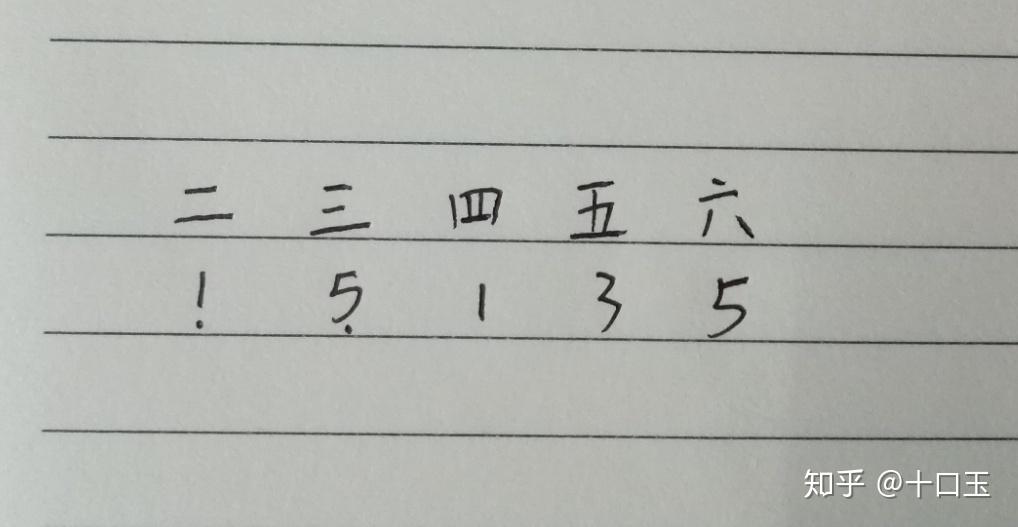 二 三 四 五 六
1̣ 5̣ 1 3 5
知乎 @十口玉